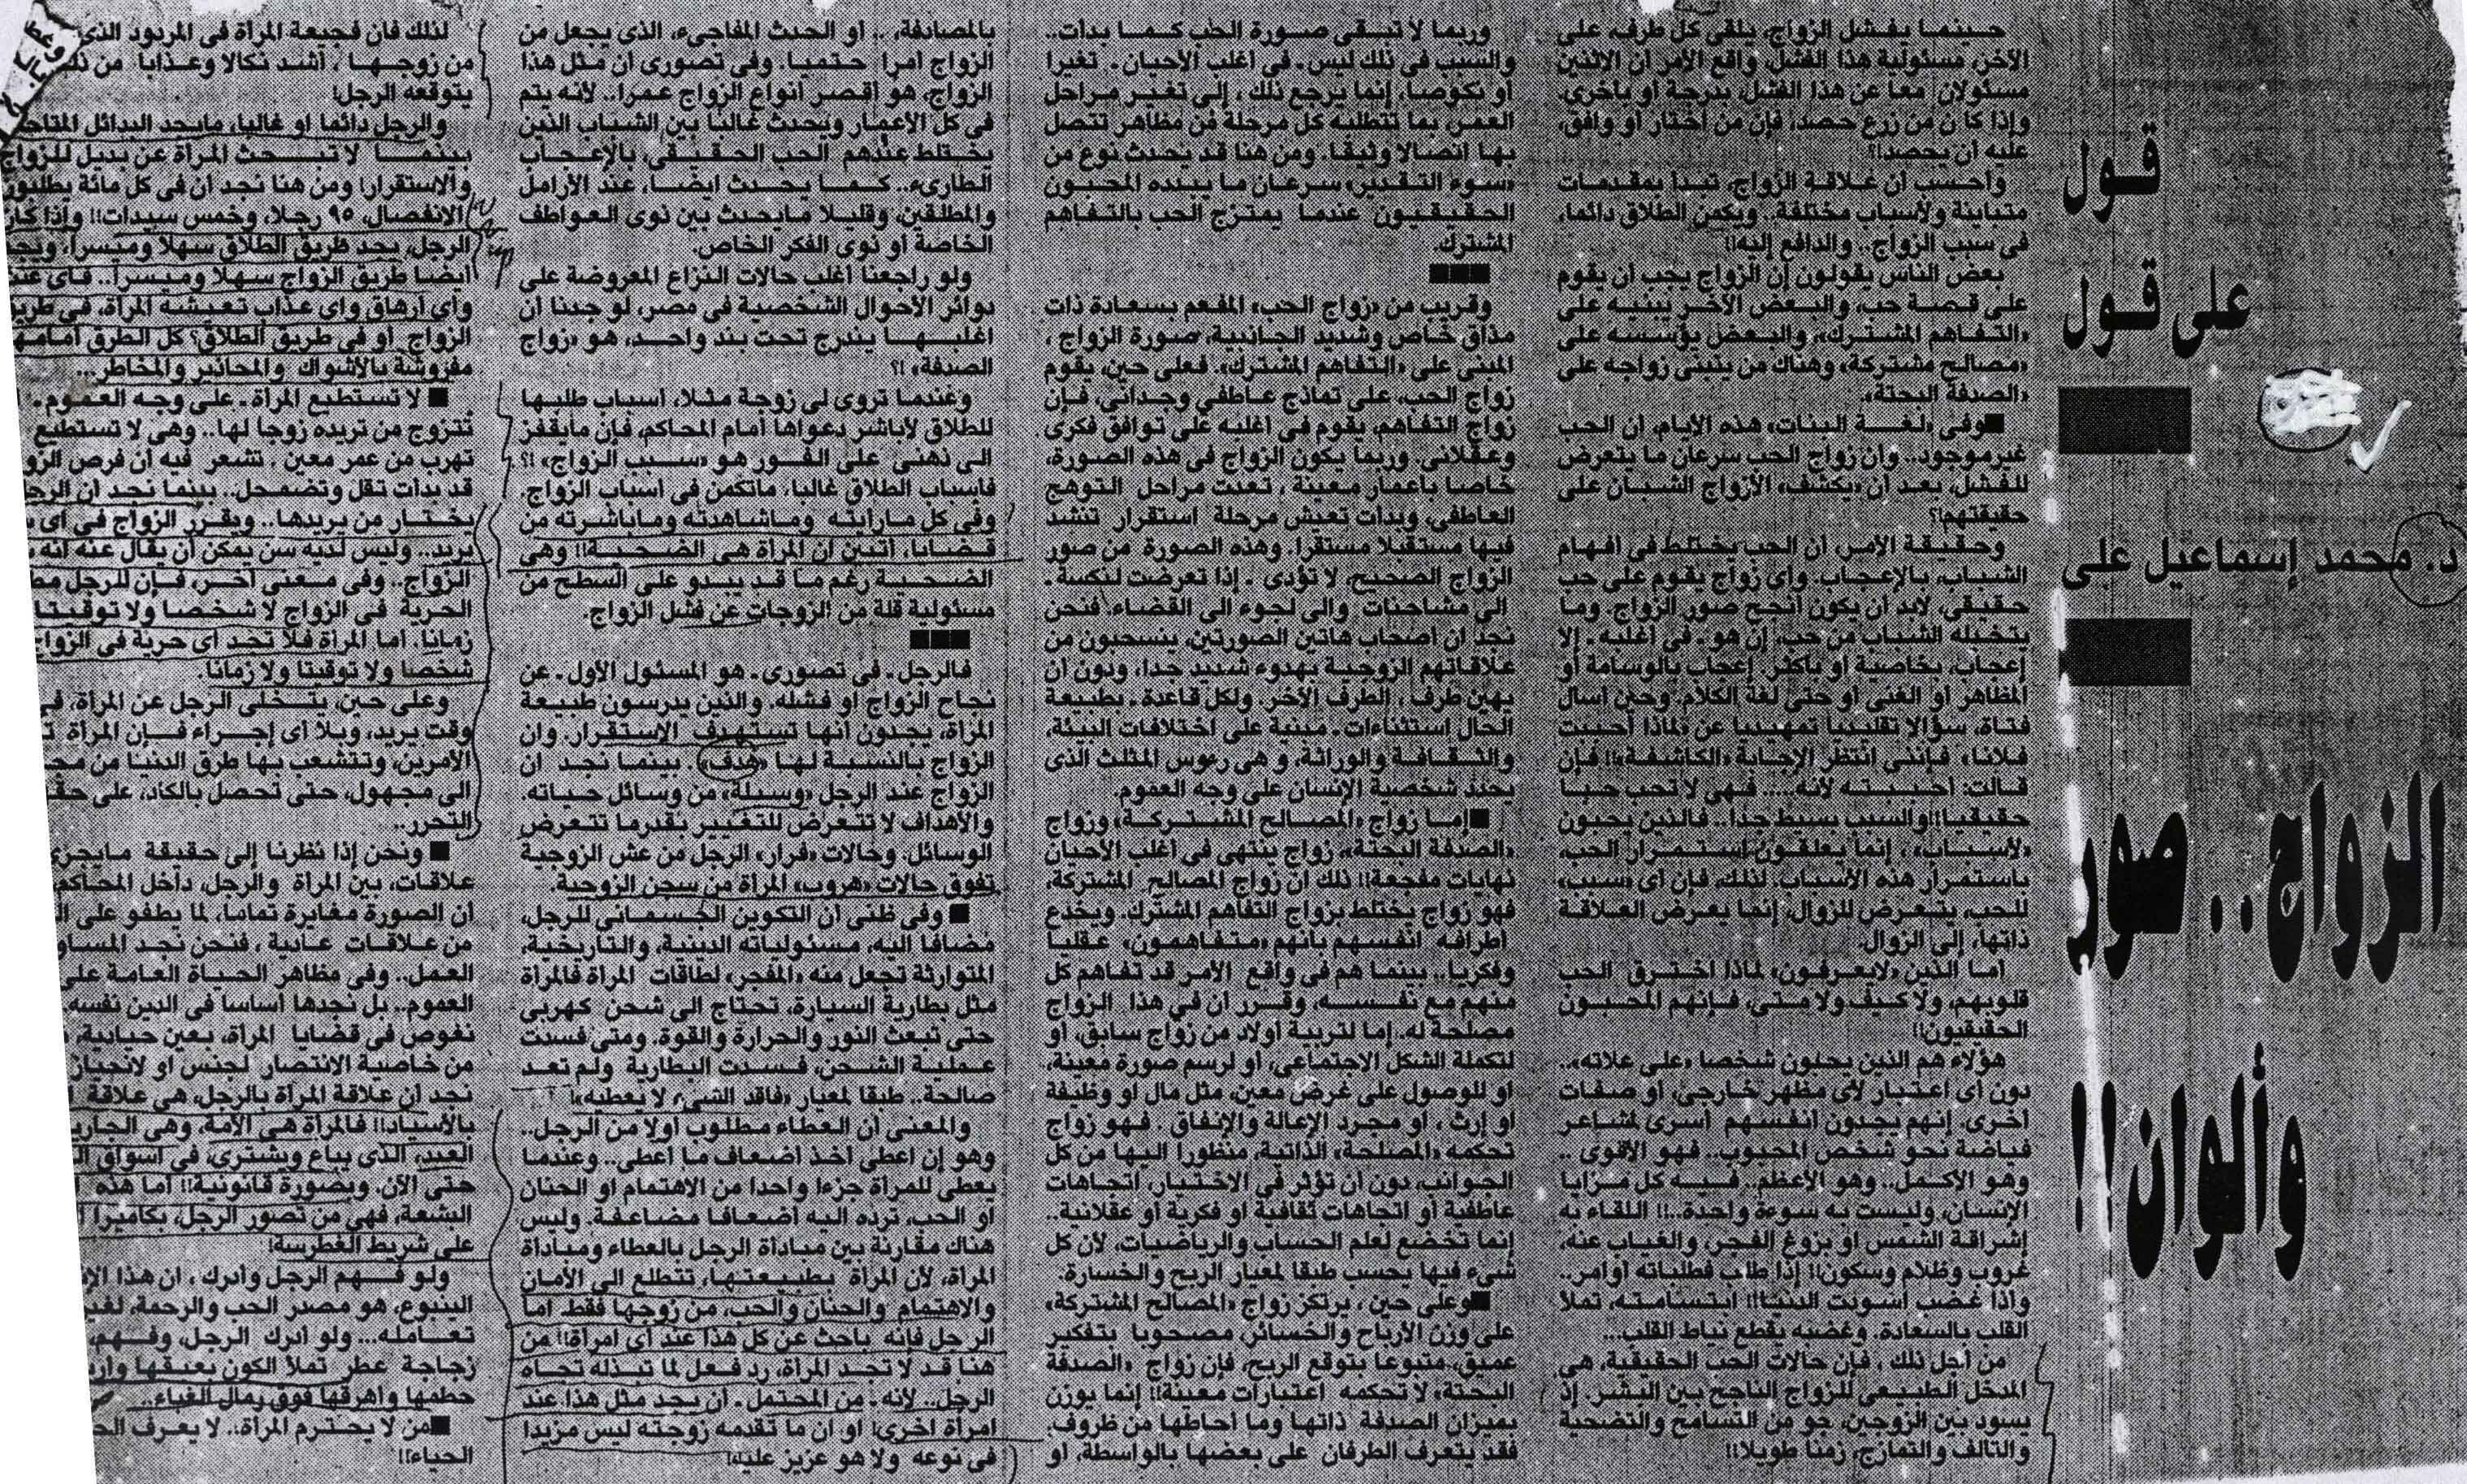 قول
على قول
د. محمد إسماعيل على
الزواج .. صور
وألوان !!
حينما يفشل الزواج، يلقى كل طرف، على
الآخر، مسئولية هذا الفشل، واقع الأمر أن الاثنين
مسئولان معا عن هذا الفشل، بدرجة أو بأخرى،
وإذا كان من زرع حصد، فإن من اختار أو وافق،
عليه أن يحصد!!
وأحسب أن علاقة الزواج، تبدأ بمقدمات
متباينة ولأسباب مختلفة.. ويكمن الطلاق دائما،
فى سبب الزواج.. والدافع إليه!!
بعض الناس يقولون إن الزواج يجب أن يقوم
على قصة حب، والبعض الآخر يبنيه على
«التفاهم المشترك»، والبعض يؤسسه على
«مصالح مشتركة» وهناك من يتبنى زواجه على
«الصدفة البحتة».
■وفى «لغة البنات» هذه الأيام، أن الحب
غير موجود.. وأن زواج الحب سرعان ما يتعرض
للفشل، بعد أن «يكشف» الأزواج الشبان على
حقيقتهم!؟
وحقيقة الأمر، أن الحب يختلط فى أفهام
الشباب، بالإعجاب. وأى زواج يقوم على حب
حقيقى، لابد أن يكون أنجح صور الزواج. وما
يتخيله الشباب من حب، إن هو ـ فى أغلبه ـ إلا
إعجاب، بخاصية أو بأكثر. إعجاب بالوسامة أو
المظاهر أو الغنى أو حتى لغة الكلام. وحين أسأل
فتاة، سؤالا تقليديا تمهيديا عن «لماذا أحببت
فلانا» فإننى أنتظر الإجابة «الكاشفة»!! فإن
قالت: أحببته لأنه.... فهى لا تحب حبا
حقيقيا!! والسبب بسيط جدا.. فالذين يحبون
«لأسباب» ، إنما يعلقون استمرار الحب،
باستمرار هذه الأسباب. لذلك، فإن أى «سبب»
للحب، يتعرض للزوال، إنما يعرض العلاقة
ذاتها، إلى الزوال.
أما الذين «لايعرفون» لماذا اخترق الحب
قلوبهم، ولا كيف ولا متى، فإنهم المحبون
الحقيقيون!!
هؤلاء هم الذين يحبون شخصا «على علاته»..
دون أى اعتبار لأى مظهر خارجى، أو صفات
أخرى. إنهم يجدون أنفسهم أسرى لمشاعر
فياضة نحو شخص المحبوب.. فهو الأقوى ..
وهو الأكمل.. وهو الأعظم.. فيه كل مزايا
الإنسان، وليست به سوءة واحدة..!! اللقاء به
إشراقة الشمس أو بزوغ الفجر، والغياب عنه،
غروب وظلام وسكون!! إذا طلب فطلباته أوامر..
وإذا غضب اسودت الدنيا!! ابتسامته، تملأ
القلب بالسعادة، وغضبه يقطع نياط القلب...
من أجل ذلك ، فإن حالات الحب الحقيقية، هى
المدخل الطبيعى للزواج الناجح بين البشر. إذ
يسود بين الزوجين، جو من التسامح والتضحية
والتآلف والتمازج، زمنا طويلا!!
وربما لا تبقى صورة الحب كما بدأت..
والسبب فى ذلك ليس ـ فى أغلب الأحيان ـ تغيرا
أو نكوصا، إنما يرجع ذلك ، إلى تغير مراحل
العمر، بما تتطلبه كل مرحلة من مظاهر تتصل
بها اتصالا وثيقا. ومن هنا قد يحدث نوع من
«سوء التقدير» سرعان ما يبدده المحبون
الحقيقيون عندما يمتزج الحب بالتفاهم
المشترك.
■■■
وقريب من «زواج الحب» المفعم بسعادة ذات
مذاق خاص وشديد الجاذبية، صورة الزواج ،
المبنى على «التفاهم المشترك». فعلى حين، يقوم
زواج الحب، على تمازج عاطفى وجدانى، فإن
زواج التفاهم، يقوم فى أغلبه على توافق فكرى
وعقلانى. وربما يكون الزواج فى هذه الصورة،
خاصا بأعمار معينة ، تعدت مراحل التوهج
العاطفى، وبدأت تعيش مرحلة استقرار تنشد
فيها مستقبلا مستقرا. وهذه الصورة من صور
الزواج الصحيح، لا تؤدى ـ إذا تعرضت لنكسة ـ
إلى مشاحنات والى لجوء الى القضاء. فنحن
نجد أن أصحاب هاتين الصورتين، ينسحبون من
علاقاتهم الزوجية بهدوء شديد جدا، ودون أن
يهين طرف ، الطرف الآخر. ولكل قاعدة ـ بطبيعة
الحال استثناءات ـ مبنية على اختلافات البيئة،
والثقافة والوراثة، وهى رءوس المثلث الذى
يحدد شخصية الإنسان على وجه العموم.
■إما زواج «المصالح المشتركة» وزواج
«الصدفة البحتة»، زواج ينتهى فى أغلب الأحيان
نهايات مفجعة!! ذلك أن زواج المصالح المشتركة،
فهو زواج يختلط بزواج التفاهم المشترك. ويخدع
أطرافه أنفسهم بأنهم «متفاهمون» عقليا
وفكريا.. بينما هم فى واقع الأمر قد تفاهم كل
منهم مع نفسه، وقرر أن فى هذا الزواج
مصلحة له. إما لتربية أولاد من زواج سابق، أو
لتكملة الشكل الاجتماعى، أو لرسم صورة معينة،
أو للوصول على غرض معين، مثل مال أو وظيفة
أو إرث ، أو مجرد الإعالة والإنفاق . فهو زواج
تحكمه «المصلحة» الذاتية، منظورا اليها من كل
الجوانب، دون أن تؤثر فى الاختيار، اتجاهات
عاطفية أو اتجاهات ثقافية أو فكرية أو عقلانية..
إنما تخضع لعلم الحساب والرياضيات، لأن كل
شىء فيها يحسب طبقا لمعيار الربح والخسارة.
■وعلى حين ، يرتكز زواج «المصالح المشتركة»
على وزن الأرباح والخسائر، مصحوبا بتفكير
عميق، متبوعا بتوقع الربح، فإن زواج «الصدفة
البحتة» لا تحكمه اعتبارات معينة!! إنما يوزن
بميزان الصدفة ذاتها وما أحاطها من ظروف،
فقد يتعرف الطرفان على بعضها بالواسطة، أو
بالمصادفة، .. أو الحدث المفاجىء، الذى يجعل من
الزواج أمرا حتميا. وفى تصورى أن مثل هذا
الزواج، هو أقصر أنواع الزواج عمرا.. لأنه يتم
فى كل الأعمار ويحدث غالبا بين الشباب الذين
يختلط عندهم الحب الحقيقى، بالإعجاب
الطارىء.. كما يحدث أيضا، عند الأرامل
والمطلقين، وقليلا مايحدث بين ذوى العواطف
الخاصة أو ذوى الفكر الخاص.
ولو راجعنا أغلب حالات النزاع المعروضة على
دوائر الأحوال الشخصية فى مصر، لو جدنا أن
أغلبها يندرج تحت بند واحد، هو «زواج
الصدفة» !؟
وعندما تروى لى زوجة مثلا، أسباب طلبها
للطلاق لأباشر دعواها أمام المحاكم، فإن مايقفز
الى ذهنى على الفور هو «سبب الزواج» !؟
فأسباب الطلاق غالبا، ماتكمن فى أسباب الزواج.
وفى كل مارأيته وماشاهدته وماباشرته من
قضايا، أتبين أن المرأة هى الضحية!! وهى
الضحية رغم ما قد يبدو على السطح من
مسئولية قلة من الزوجات عن فشل الزواج.
■■■
فالرجل ـ فى تصورى ـ هو المسئول الأول ـ عن
نجاح الزواج أو فشله. والذين يدرسون طبيعة
المرأة، يجدون أنها تستهدف الاستقرار. وأن
الزواج بالنسبة لها «هدف» . بينما نجد أن
الزواج عند الرجل «وسيلة» من وسائل حياته.
والأهداف لا تتعرض للتغيير بقدرما تتعرض
الوسائل. وحالات «فرار» الرجل من عش الزوجية
تفوق حالات «هروب» المرأة من سجن الزوجية.
■ وفى ظنى أن التكوين الجسمانى للرجل،
مضافا إليه، مسئولياته الدينية، والتاريخية،
المتوارثة تجعل منه «المفجر» لطاقات المرأة فالمرأة
مثل بطارية السيارة، تحتاج الى شحن كهربى
حتى تبعث النور والحرارة والقوة. ومتى فسدت
عملية الشحن، فسدت البطارية ولم تعد
صالحة.. طبقا لمعيار «فاقد الشىء لا يعطيه»!
والمعنى أن العطاء مطلوب أولا من الرجل..
وهو إن أعطى أخذ أضعاف ما أعطى.. وعندما
يعطى للمرأة جزءا واحدا من الاهتمام أو الحنان
أو الحب، ترده اليه أضعافا مضاعفة. وليس
هناك مقارنة بين مبادأة الرجل بالعطاء ومبادأة
المرأة، لأن المرأة بطبيعتها، تتطلع الى الأمان
والاهتمام والحنان والحب، من زوجها فقط. أما
الرجل فإنه باحث عن كل هذا عند أى امرأة!! من
هنا قد لا تجد المرأة، رد فعل لما تبذله تجاه
الرجل.. لأنه ـ من المحتمل ـ أن يجد مثل هذا عند
امرأة أخرى! أو أن ما تقدمه زوجته ليس مزيدا
فى نوعه ولا هو عزيز عليه!
لذلك فان فجيعة المرأة فى المردود الذى
من زوجها ، أشد نكالا وعذابا من
يتوقعه الرجل!
والرجل دائما أو غالبا، مايجد البدائل المتاحة
بينما لا تبحث المرأة عن بديل للزواج
والاستقرار! ومن هنا نجد أن فى كل مائة يطلبون
الانفصال، ٩٥ رجلا، وخمس سيدات!! وإذا كان
الرجل، يجد طريق الطلاق سهلا وميسرا، ويجد
أيضا طريق الزواج سهلا وميسرا.. فأى
وأى أرهاق وأى عذاب تعيشه المرأة، فى طريق
الزواج أو فى طريق الطلاق؟ كل الطرق أمامها
مفروشة بالأشواك والمحاذير والمخاطر...
■ لا تستطيع المرأة ـ على وجه العموم ـ
تتزوج من تريده زوجا لها.. وهى لا تستطيع
تهرب من عمر معين ، تشعر فيه أن فرص
قد بدأت تقل وتضمحل.. بينما نجد أن
يختار من يريدها.. ويقرر الزواج فى أى
يريد.. وليس لديه سن يمكن أن يقال عنه أنه
الزواج.. وفى معنى آخر، فإن للرجل
الحرية فى الزواج لا شخصا ولا توقيتا
زمانا. أما المرأة فلا تجد أى حرية فى الزواج
شخصا ولا توقيتا ولا زمانا.
وعلى حين، يتخلى الرجل عن المرأة، فى
وقت يريد، وبلا أى إجراء فإن المرأة
الأمرين، وتتشعب بها طرق الدنيا من
الى مجهول، حتى تحصل بالكاد، على
التحرر..
■ ونحن إذا نظرنا إلى حقيقة مايجرى
علاقات، بين المرأة والرجل، داخل المحاكم،
أن الصورة مغايرة تماما، لما يطفو على
من علاقات عادية ، فنحن نجد
العمل.. وفى مظاهر الحياة العامة على
العموم.. بل نجدها أساسا فى الدين نفسه،
نغوص فى قضايا المرأة، بعين حيادية،
من خاصية الانتصار لجنس أو لانحياز
نجد أن علاقة المرأة بالرجل، هى علاقة
بالأسياد!! فالمرأة هى الأمة، وهى
العبد، الذى يباع ويشترى، فى أسواق
حتى الآن، وبصورة قانونية!! أما هذه
البشعة، فهى من تصور الرجل، بكاميرا
على شريط الغطرسة!
ولو فهم الرجل وأدرك ، أن هذا
الينبوع، هو مصدر الحب والرحمة، لغير
تعامله... ولو أدرك الرجل، وفهم،
زجاجة عطر تملأ الكون بعبقها
حطمها وأهرقها فوق رمال الغباء..
■من لا يحترم المرأة،. لا يعرف
الحياء!!